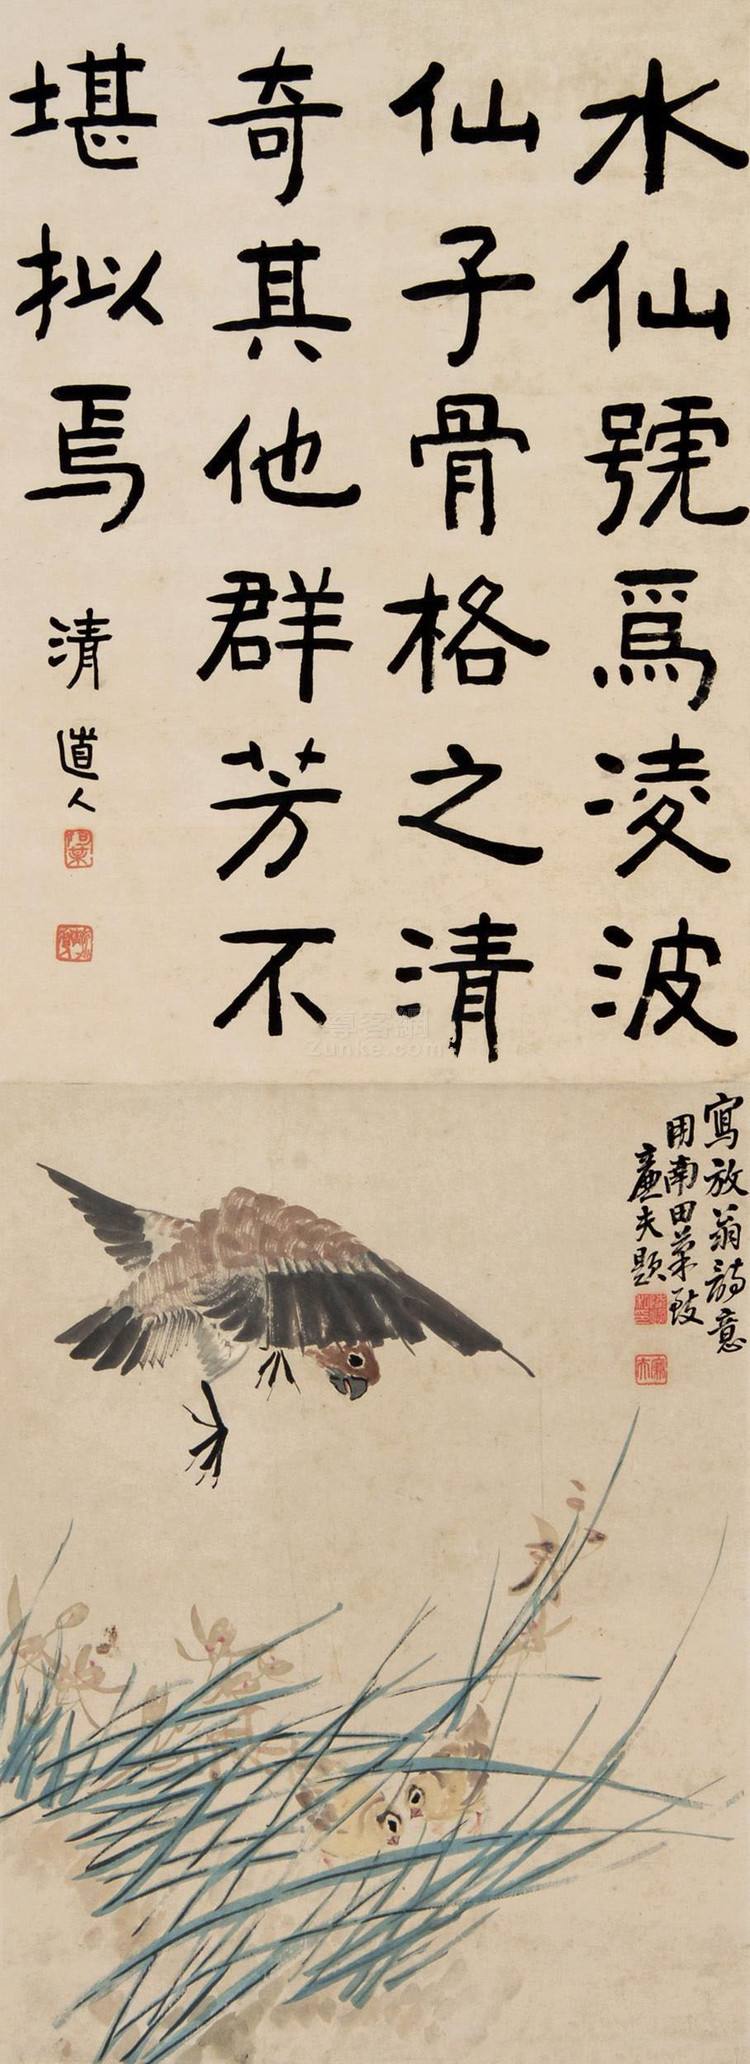 水仙號爲凌波
仙子骨格之清
奇其他群芳不
堪拟焉
清道人
寫放翁詩意
用南田筆致
廉夫題
尊客網
zunke.com